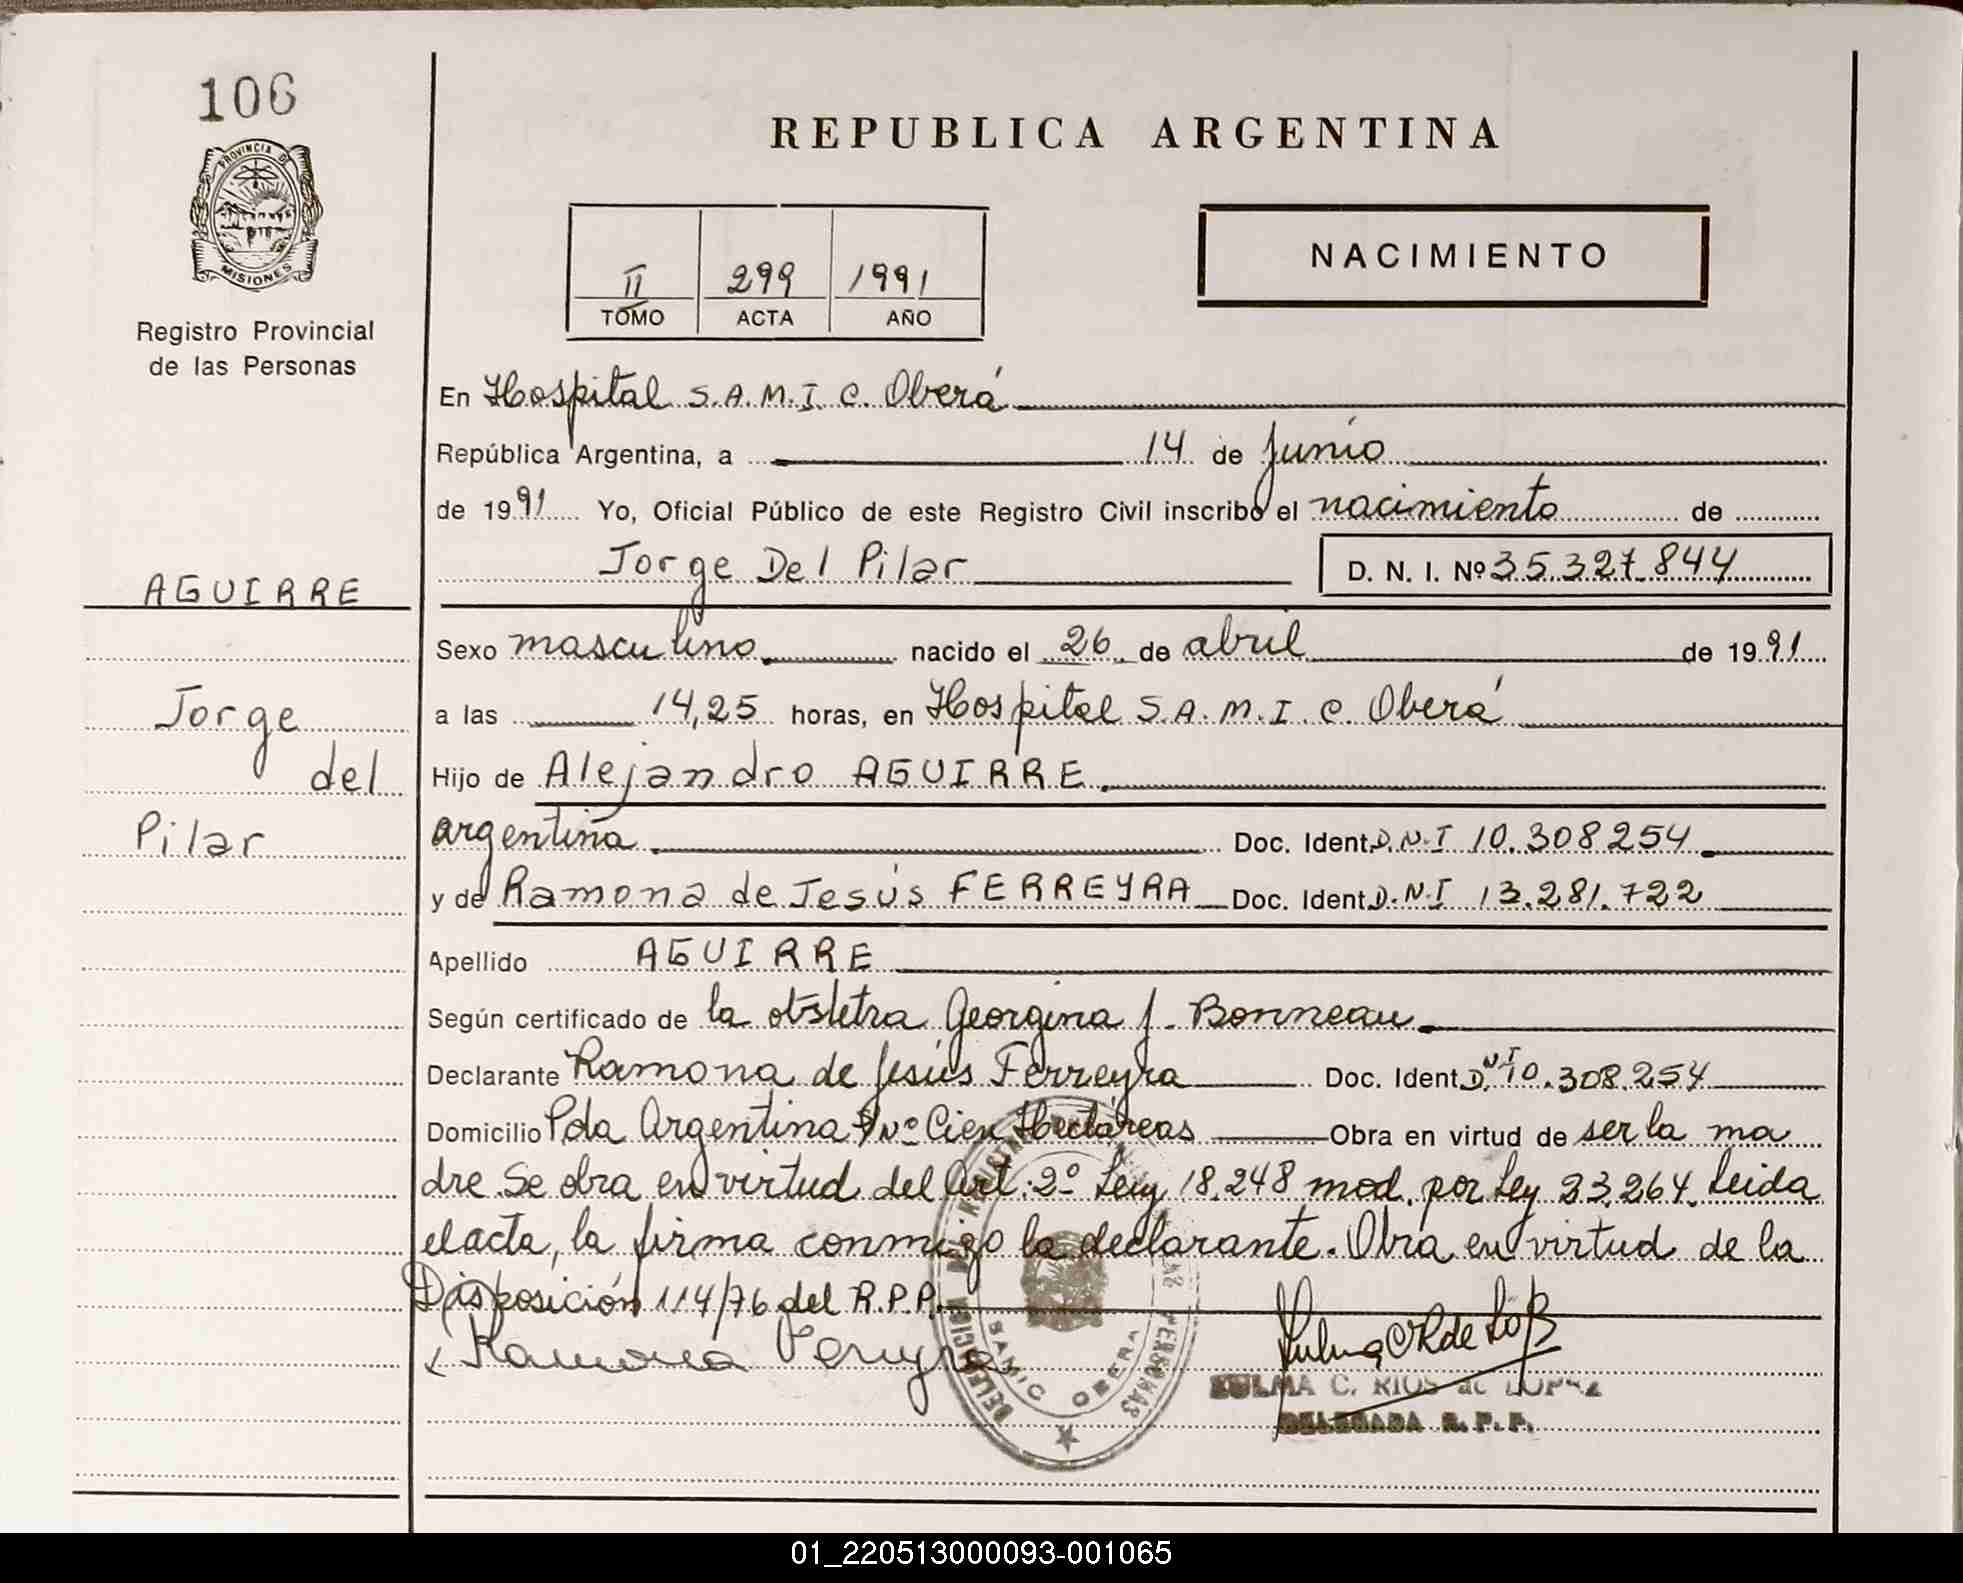 106
PROVINCIA DE
MISIONES
Registro Provincial
de las Personas
REPUBLICA ARGENTINA
II 299 1991
TOMO ACTA AÑO
NACIMIENTO
En Hospital S.A.M.I.C. Oberá
República Argentina, a 14 de Junio
de 1991 Yo, Oficial Público de este Registro Civil inscribo el nacimiento de
Jorge Del Pilar D. N. I. Nº 35.327.844
AGUIRRE
Jorge
del
Pilar
Sexo masculino nacido el 26 de abril de 1991
a las 14,25 horas, en Hospital S.A.M.I.C. Oberá
Hijo de Alejandro AGUIRRE
argentina Doc. Ident. D.N.I 10.308254
y de Ramona de Jesús FERREYRA Doc. Ident. D.N.I 13.281.722
Apellido AGUIRRE
Según certificado de la obstetra Georgina J. Bonneau
Declarante Ramona de Jesús Ferreyra Doc. Ident D.N.I 10.308.254
Domicilio Pda Argentina Nº Cien Hectáreas Obra en virtud de ser la ma
dre. Se obra en virtud del Art. 2º Ley 18.248 mod. por Ley 23.264. Leida
el acta, la firma conmigo la declarante. Obra en virtud de la
Disposición 114/76 del R.P.P.
Ramona Ferreyra
SAMIC OBERA
ZULMA C. RIOS de LOPEZ
DELEGADA R. P. P.
01_220513000093-001065